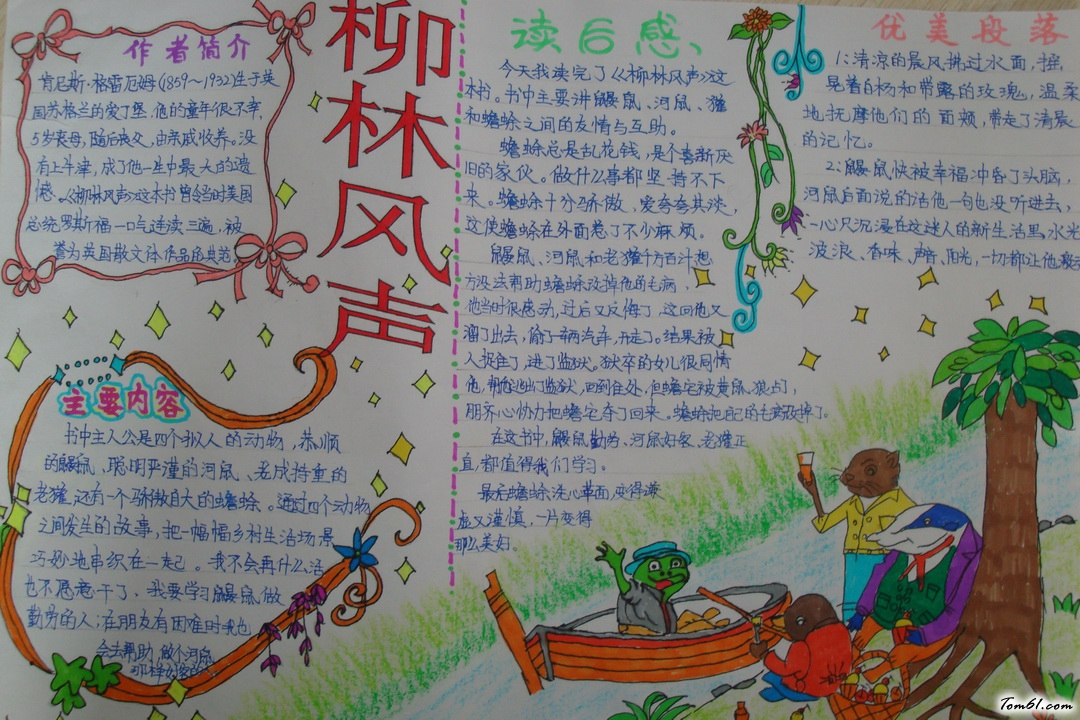 作者简介
肯尼斯·格雷厄姆(1859～1932)生于英
国苏格兰的爱丁堡,他的童年很不幸,
5岁丧母,随后丧父,由亲戚收养。没
有上牛津,成了他一生中最大的遗
憾。《柳林风声》这本书曾当时美国
总统罗斯福一口气连读三遍,被
誉为英国散文体作品的典范
柳林风声
主要内容
书中主人公是四个拟人的动物,恭顺
的鼹鼠、聪明严谨的河鼠、老成持重的
老獾,还有一个骄傲自大的蟾蜍。通过四个动物
之间发生的故事,把一幅幅乡村生活场景
巧妙地串织在一起。我不会再什么活
也不愿意干了,我要学习鼹鼠,做
勤劳的人;在朋友有困难时我也
会去帮助,做个河鼠
那样好客的
读后感、
今天我读完了《柳林风声》这
本书。书中主要讲鼹鼠、河鼠、獾
和蟾蜍之间的友情与互助。
蟾蜍总是乱花钱,是个喜新厌
旧的家伙。做什么事都坚持不下
来。蟾蜍十分骄傲,爱夸夸其谈,
这使蟾蜍在外面惹了不少麻烦。
鼹鼠、河鼠和老獾千方百计想
方没法帮助蟾蜍改掉他的毛病,
他当时很感动,过后又反悔了,这回他又
溜了出去,偷了一辆汽车,开走了。结果被
人捉住了,进了监狱。狱卒的女儿很同情
他,帮他逃出了监狱,回到住处,但蟾宅被黄鼠、狼占了,
朋齐心协力把蟾宅夺了回来。蟾蜍把自己的毛病改掉了。
在这书中,鼹鼠勤劳、河鼠好客、老獾正
直,都值得我们学习。
最后蟾蜍洗心革面,变得谦
虚又谨慎,一片变得
那么美好。
优美段落
1:清凉的晨风拂过水面,摇
晃着白杨和带露的玫瑰,温柔
地抚摩他们的面颊,带走了清晨
的记忆。
2:鼹鼠快被幸福冲昏了头脑,
河鼠后面说的话他一句也没听进去,
一心只沉浸在这迷人的新生活里,水光
波浪、香味、声音、阳光,一切都让他
Tom61.com